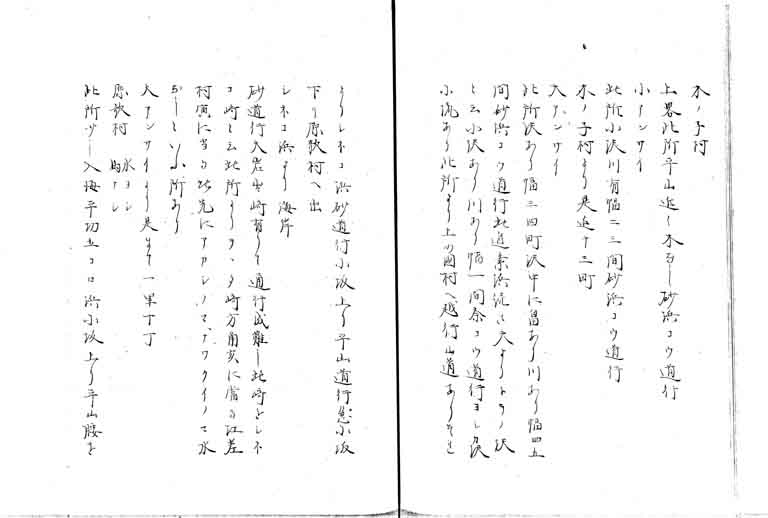 木ノ子村
上畧此所平山近ク木ナシ砂浜コウ道行
小アンサイ
此所小沢川有幅二三間砂浜コウ道行
木ノ子村より是迄十三町
大アンサイ
此所沢あり幅三四町沢中に畠あり川あり幅四五
間砂浜コウ道行此辺素浜続に大よりトラノ沢
と云小沢あり川あり幅一間余コウ道行ヨシ此沢
小流あり此所より上の国村へ越行山道ありそれ
よりシネコ浜砂道行小坂上り平山道行忽小坂
下り原歌村へ出
シネコ浜より海岸
砂道行大岩出崎有りて通行成難し此崎をシネ
コ崎と云此所より 崎方角亥に当る江差
村寅に当る此先に 水
と小所あり
大アンサイより是まて一里丁丁
原歌村 水ヨシ 馬ナシ
此所少し入海平切立コロ浜小坂上り平山腰を